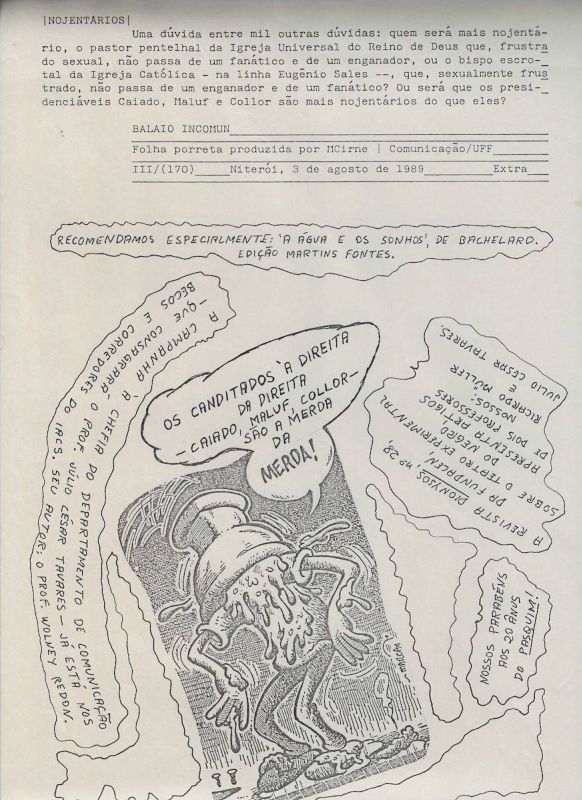 |NOJENTÁRIOS|
Uma dúvida entre mil outras dúvidas: quem será mais nojentá-
rio, o pastor pentelhal da Igreja Universal do Reino de Deus que, frustra_
do sexual, não passa de um fanático e de um enganador, ou o bispo escro-
tal da Igreja Católica - na linha Eugênio Sales --, que, sexualmente frus_
trado, não passa de um enganador e de um fanático? Ou será que os presi-
denciáveis Caiado, Maluf e Collor são mais nojentários do que eles?
BALAIO INCOMUN
Folha porreta produzida por MCirne | Comunicação/UFF
III/(170) Niterói, 3 de agosto de 1989 Extra
RECOMENDAMOS ESPECIALMENTE: 'A ÁGUA E OS SONHOS', DE BACHELARD.
EDIÇÃO MARTINS FONTES.
A CAMPANHA À CHEFIA DO DEPARTAMENTO DE COMUNICAÇÃO
— QUE CONSAGRARÁ O PROF. JÚLIO CÉSAR TAVARES — JÁ ESTÁ NOS
BECOS E CORREDORES DO IACS. SEU AUTOR: O PROF. WOLNEY REDON.
OS CANDITADOS 'A DIREITA
DA DIREITA
— CAIADO, MALUF, COLLOR —
SÃO A MERDA
DA
MERDA!
A REVISTA DIONYSOS, Nº 28,
DA FUNDACEN,
SOBRE O TEATRO EXPERIMENTAL
DO NEGRO,
APRESENTA ARTIGOS
DE DOIS PROFESSORES
NOSSOS:
RICARDO MÜLLER
E
JULIO CESAR TAVARES.
NOSSOS PARABÉNS
AOS 20 ANOS
DO PASQUIM!